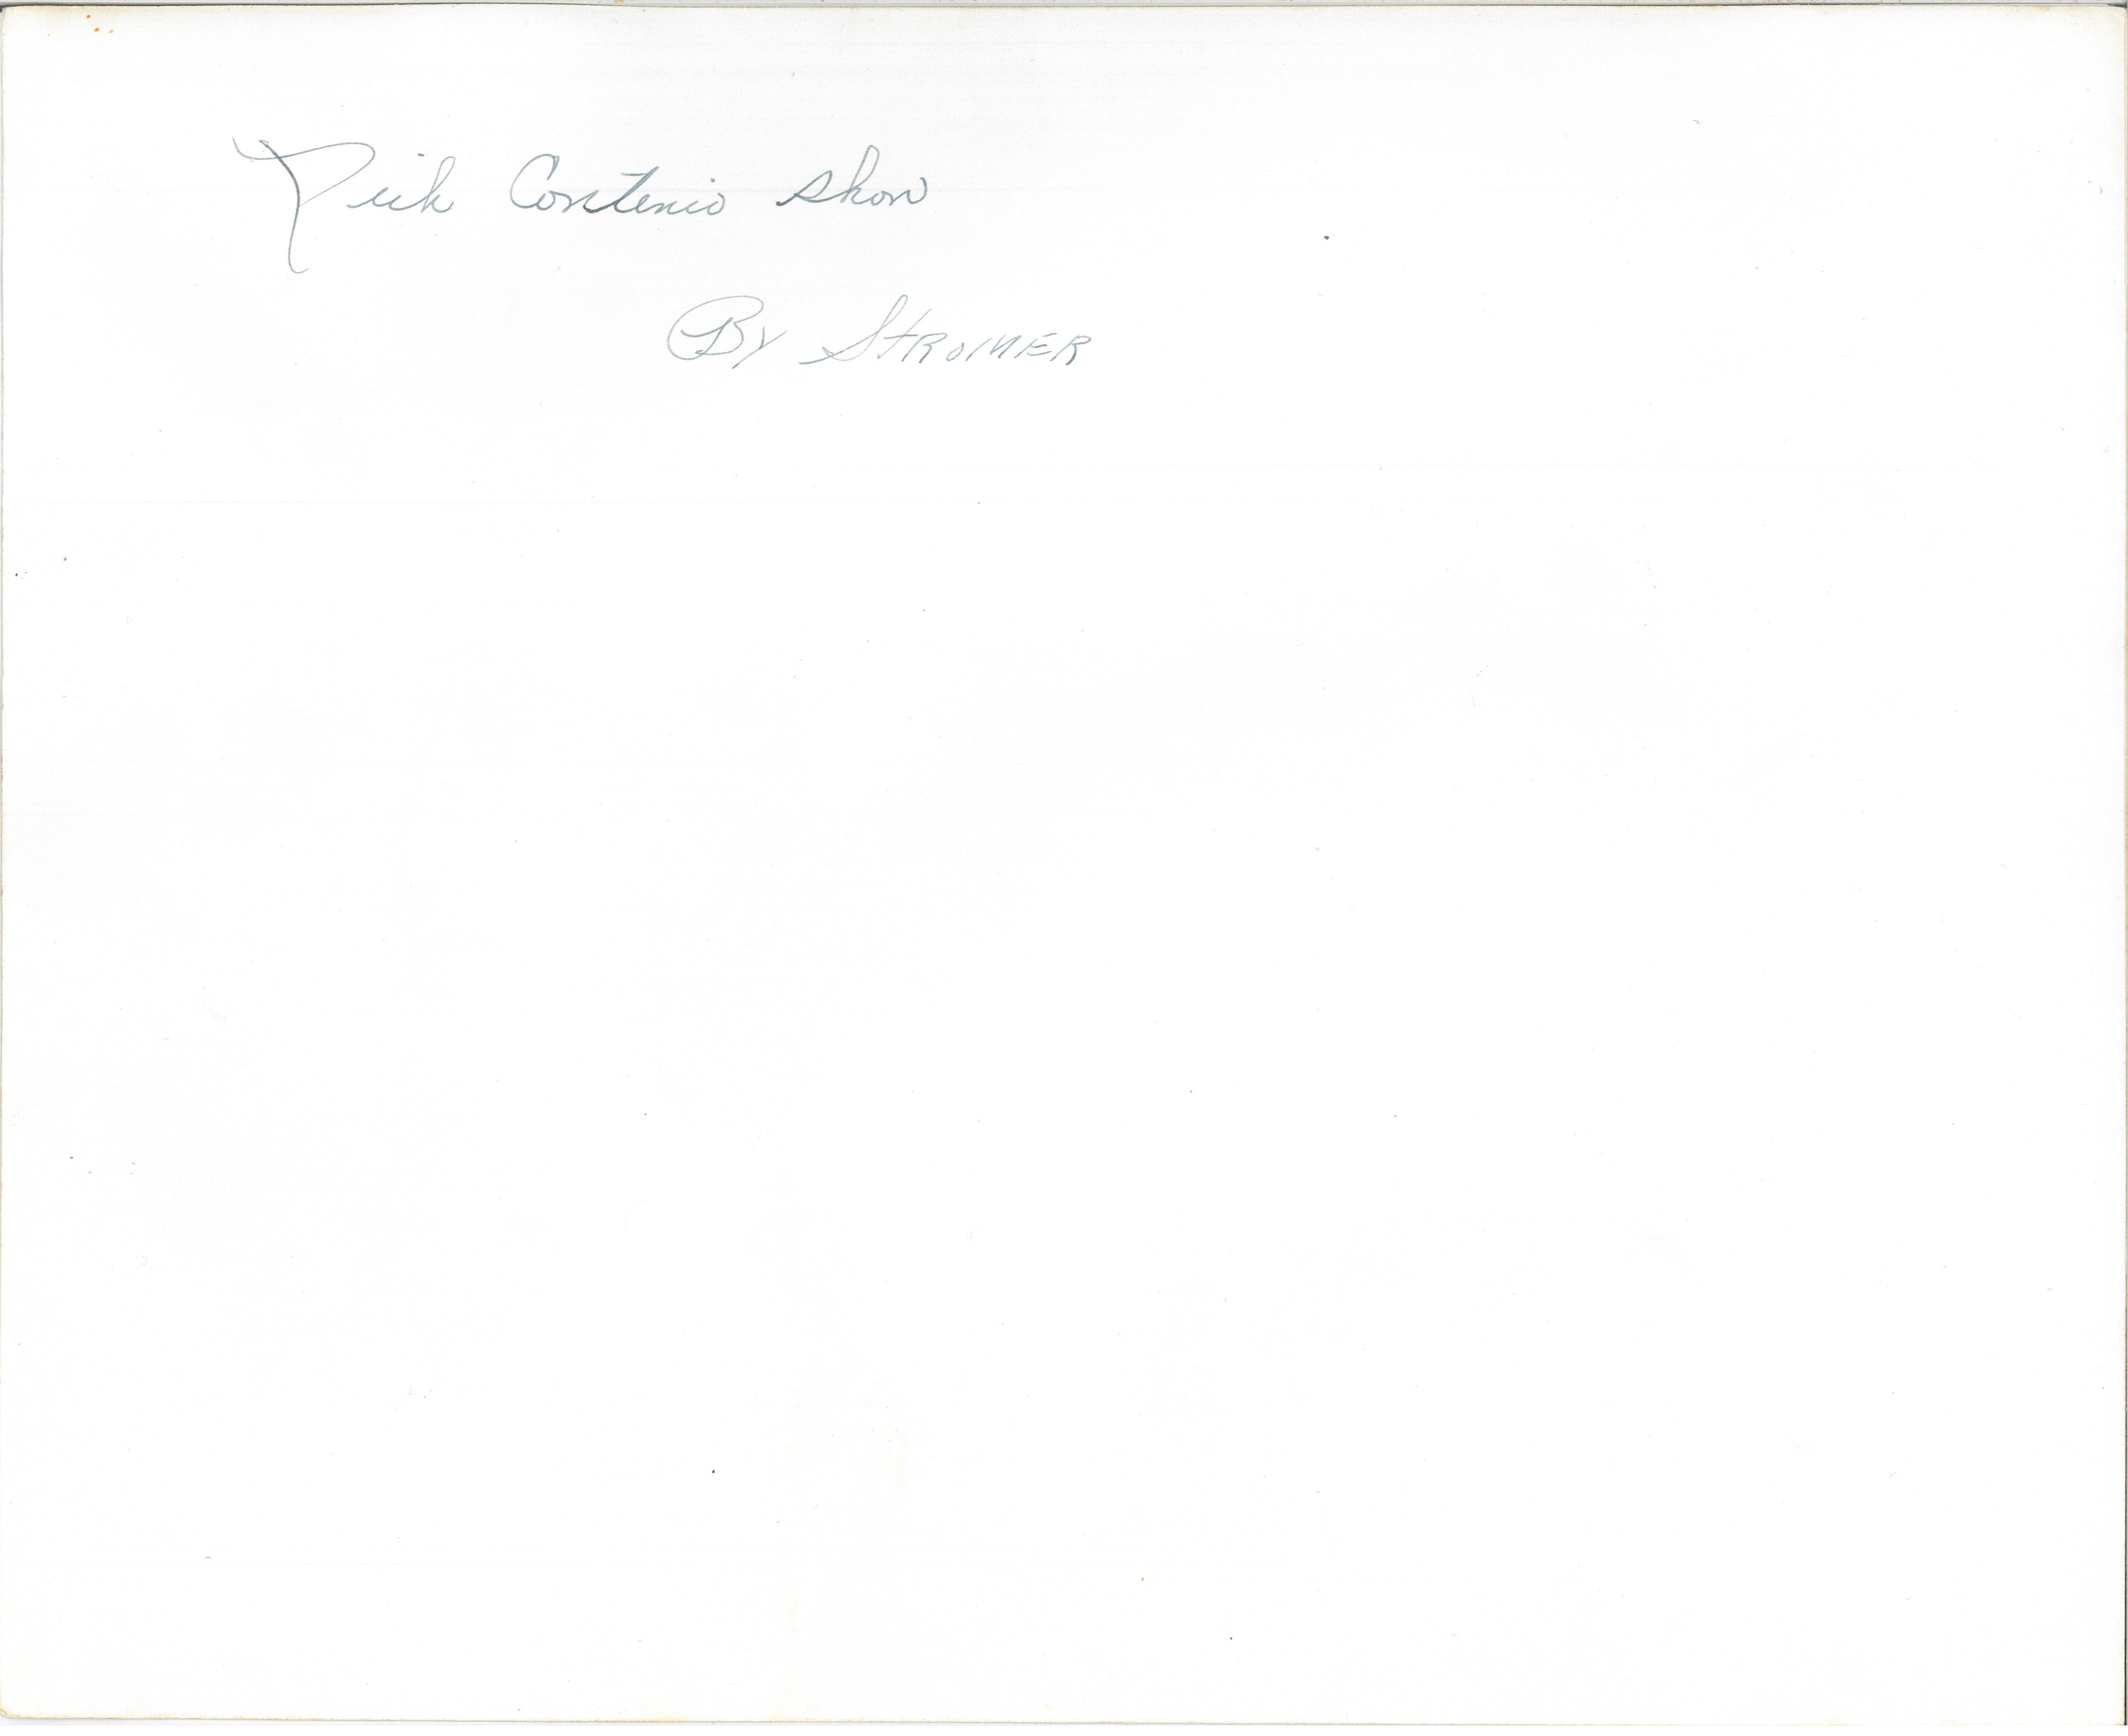 Dick Contenio show
By STROMER